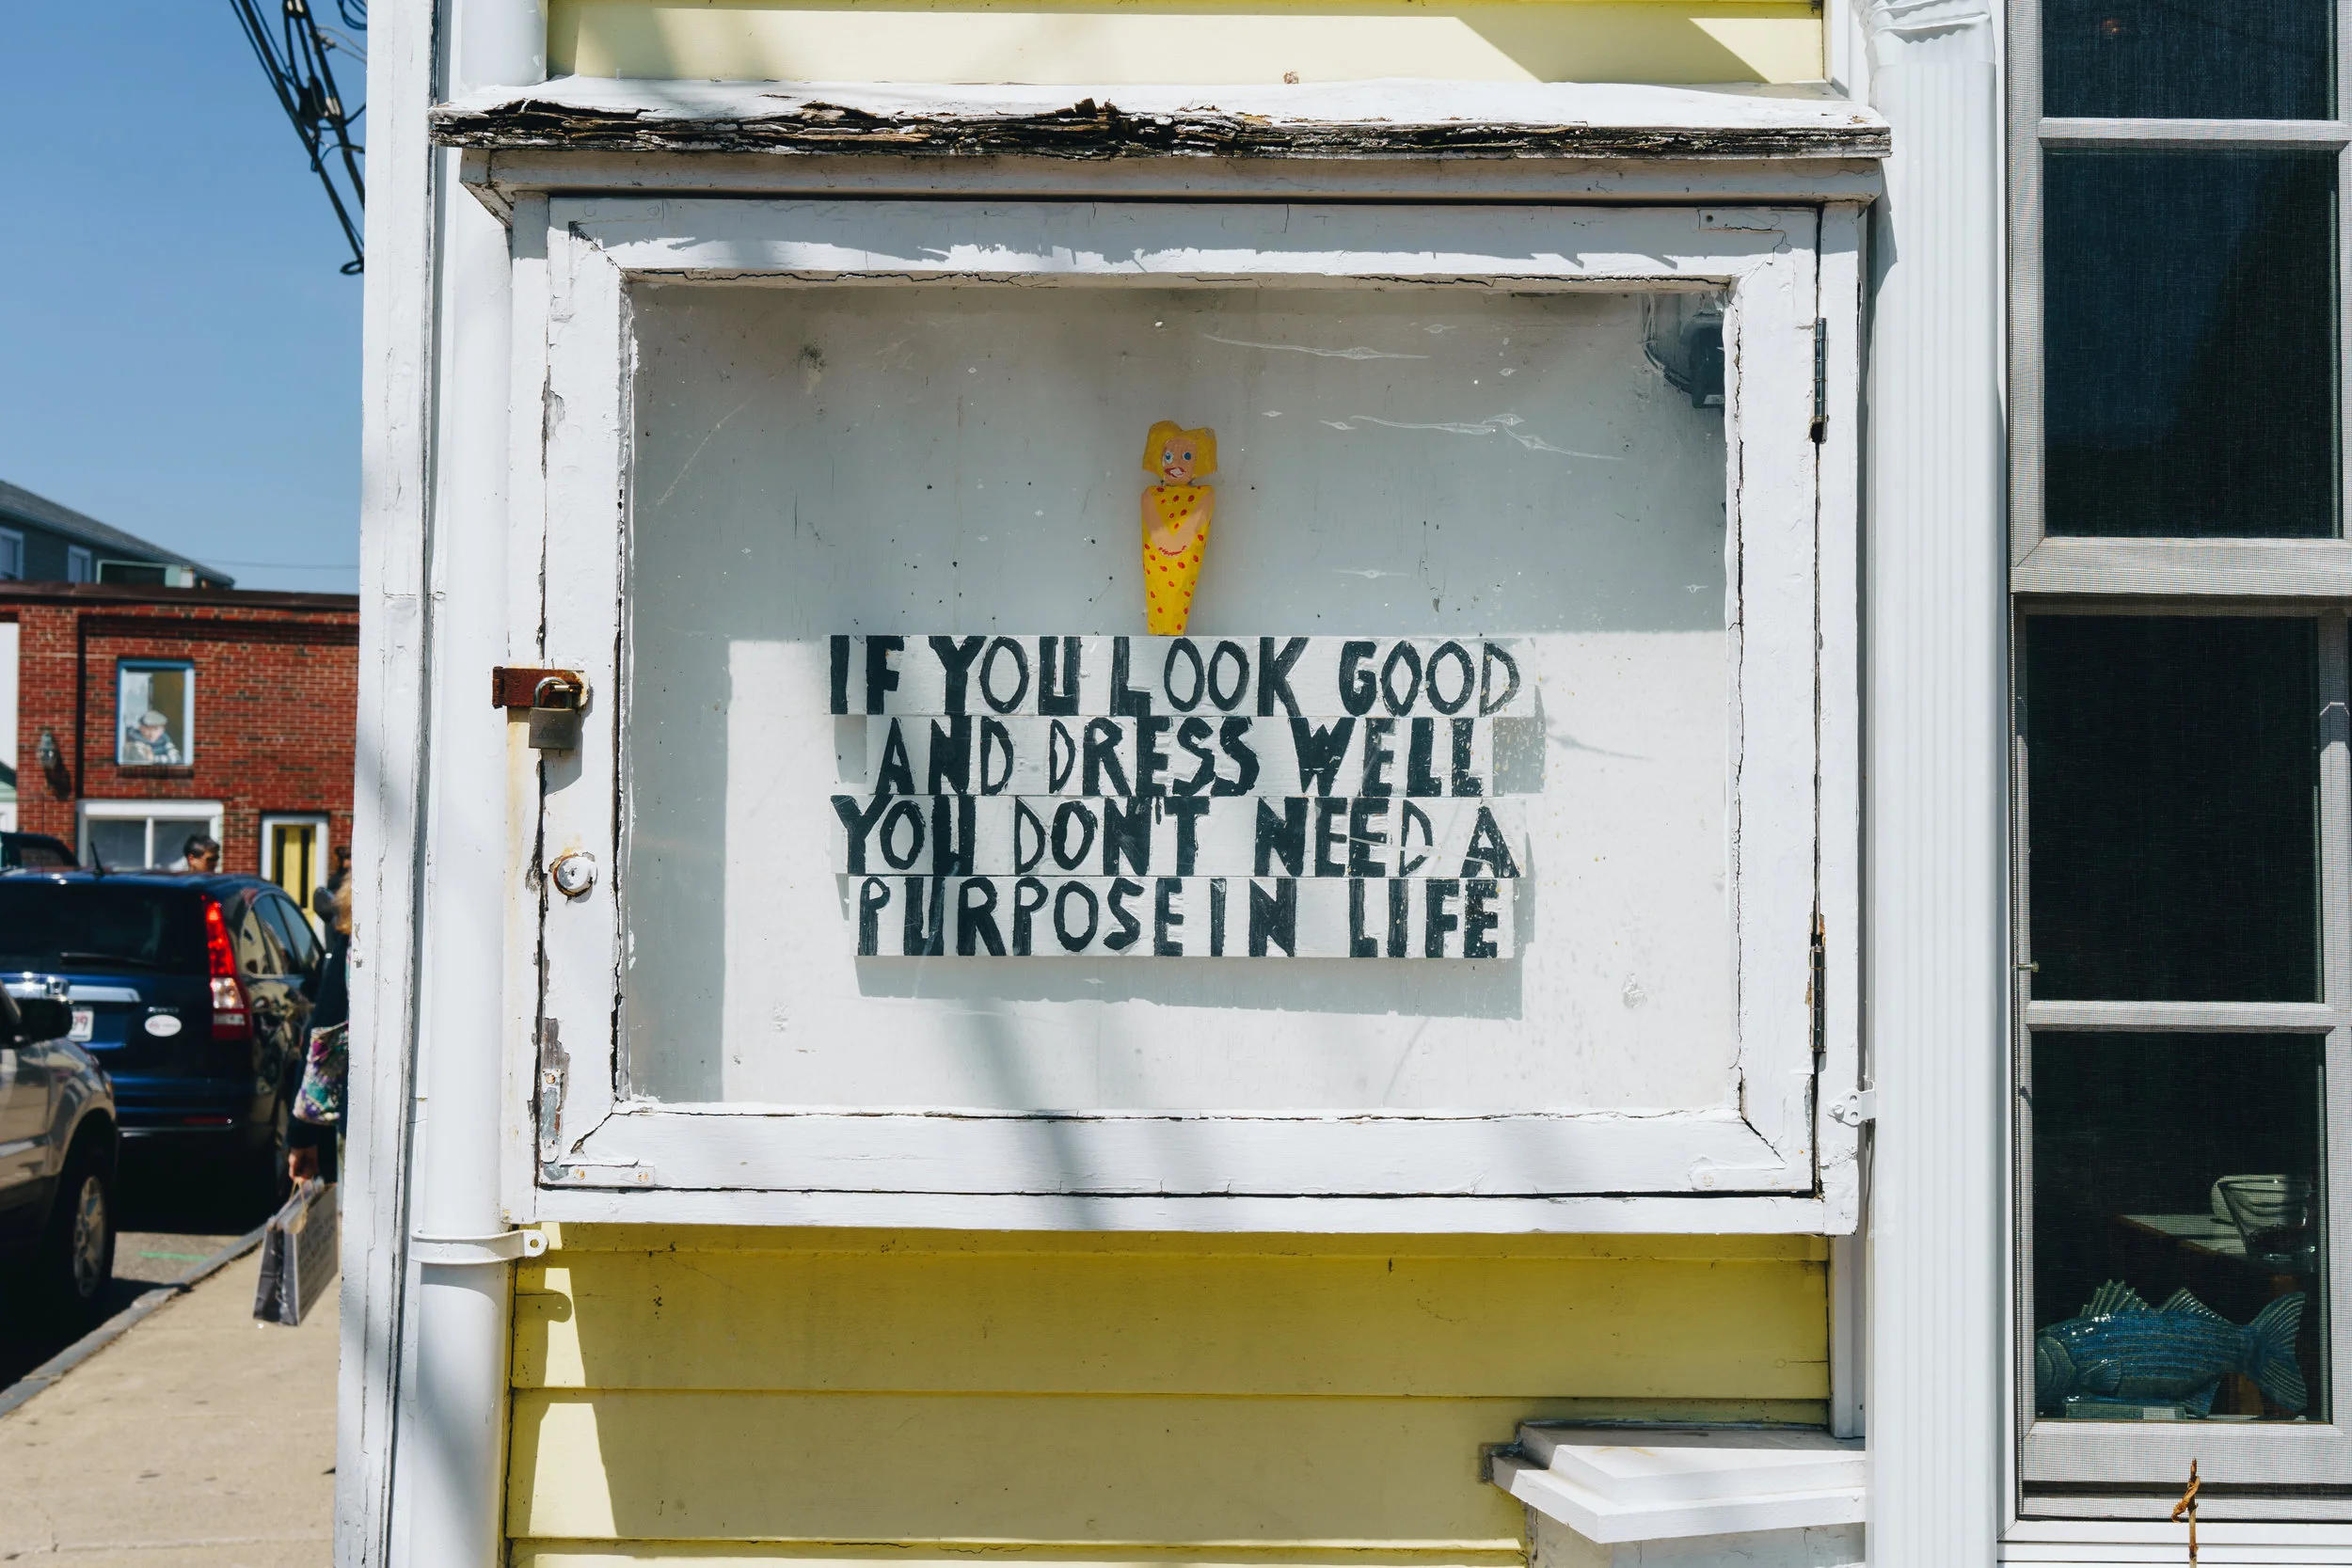 IF YOU LOOK GOOD
AND DRESS WELL
YOU DON'T NEED A
PURPOSE IN LIFE